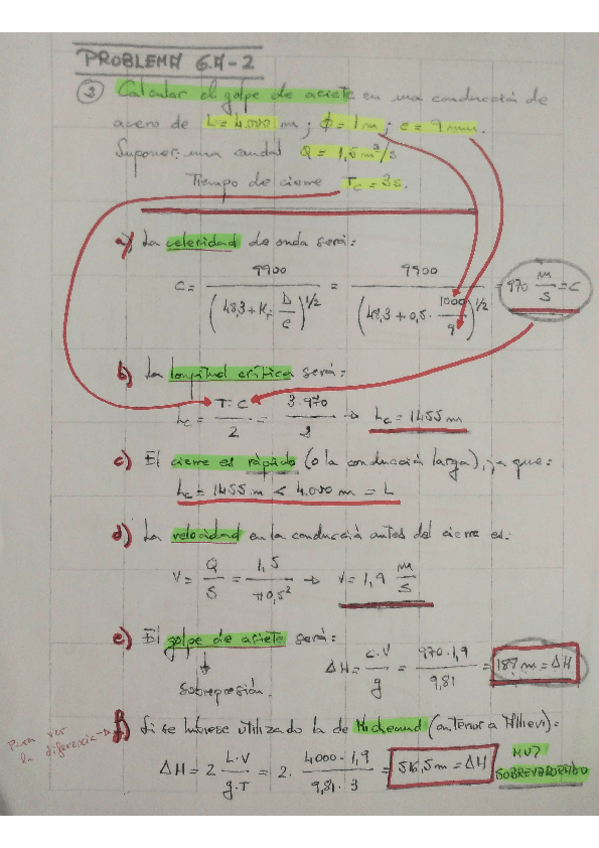 PROBLEMA 6.A-2
② Calcular el golpe de ariete en una conducción de
acero de L = 4.000 m ; ϕ = 1 m ; e = 9 mm.
Suponer: una caudal Q = 1,5 m³/s
Tiempo de cierre Tc = 3s.
a) La celeridad de onda será:
C = 9900 / (48,3 + K · D/e)^1/2 = 9900 / (48,3 + 0,5 · 1000/9)^1/2 = 970 m/s = C
b) La longitud crítica será:
Lc = T·C / 2 = 3·970 / 2 → Lc = 1455 m
c) El cierre es rápido (o la conducción larga), ya que:
Lc = 1455 m < 4.000 m = L
d) La velocidad en la conducción antes del cierre es:
V = Q / S = 1,5 / π 0,5² → V = 1,9 m/s
e) El golpe de ariete será:
↓
Sobrepresión.
ΔH = C·V / g = 970·1,9 / 9,81 = 188 m = ΔH
Para ver
la diferencia →
f) Si se hubiese utilizado la de Michaud (anterior a Allievi):
ΔH = 2 L·V / g·T = 2 · 4000·1,9 / 9,81·3 = 516,5 m = ΔH
MUY
SOBREVALORADO